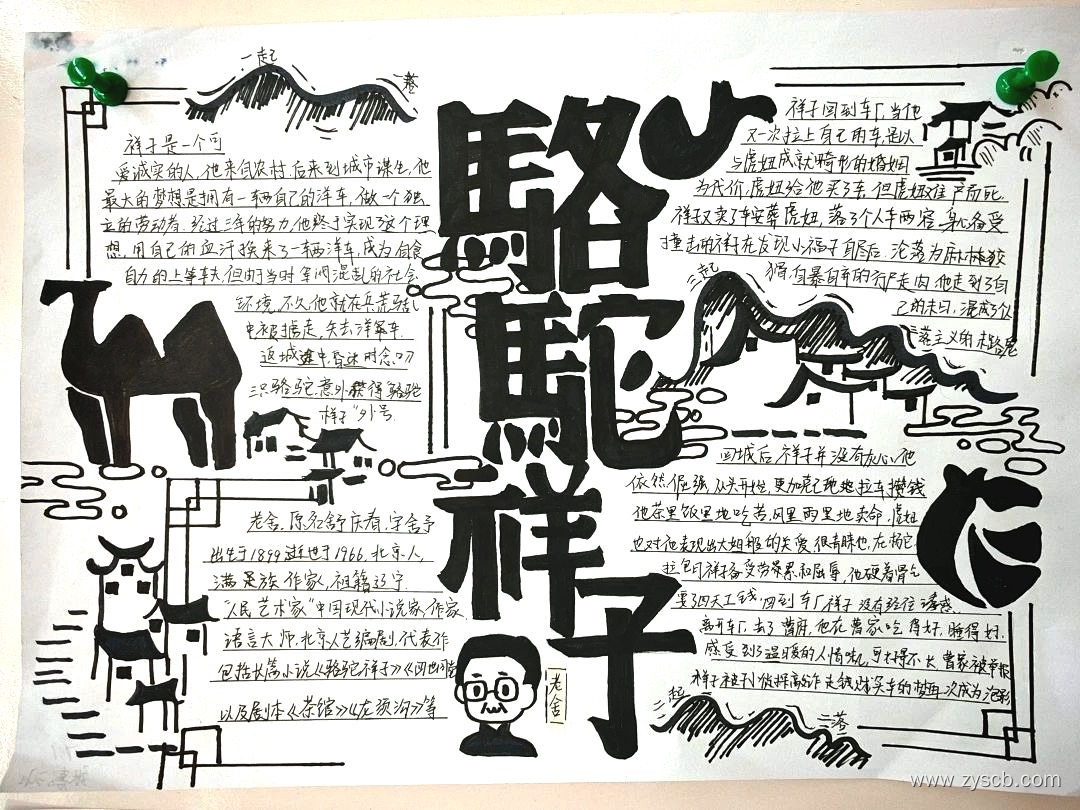 骆驼祥子
一起
一落
祥子是一个可
爱诚实的人，他来自农村，后来到城市谋生，他
最大的梦想是拥有一辆自己的洋车，做一个独
立的劳动者，经过三年的努力，他终于实现了这个理
想，用自己的血汗换来了一辆洋车，成为自食
自力的上等车夫，但由于当时军阀混乱的社会
环境，不久他就在兵荒马乱
中被掳走，失去洋车
返城途中昏迷时念叨
三只骆驼，意外获得骆驼
祥子"外号.
老舍，原名舒庆春，字舍予
出生于1899 逝世于1966，北京人，
满族 作家，祖籍辽宁
"人民艺术家"中国现代小说家、作家
语言大师，北京人艺编剧，代表作
包括长篇小说《骆驼祥子》《四世同堂
以及剧本《茶馆》《龙须沟》等
老舍
祥子回到车厂，当他
又一次拉上自己的车，是以
与虎妞成就畸形的婚姻
为代价，虎妞给他买了车，但虎妞难产而死，
祥子又卖了车安葬虎妞，落了个人车两空，身心备受
撞击的祥子在发现小福子自尽后，沦落为麻木狡
猾，自暴自弃的行尸走肉，他走到了自
己的末日，混成个人
主义的末路鬼
三起
三落
回城后 祥子并没有灰心，他
依然倔强，从头开始，更加克己地拉车攒钱
他茶里饭里地吃苦，风里雨里地卖命，虎妞
也对他表现出大姐般的关爱，很青睐他，在杨宅
拉包月祥子备受劳累和屈辱，他硬着骨气
要了四天工钱，回到车厂 祥子没有经住诱惑，
离开车厂，去了曹府，他在曹家吃得好，睡得好，
感受到了温暖的人情味，可好景不长，曹家被举报
祥子被孙侦探敲诈走钱财，买车的梦再次成为泡影
二起
二落
www.zyscb.com